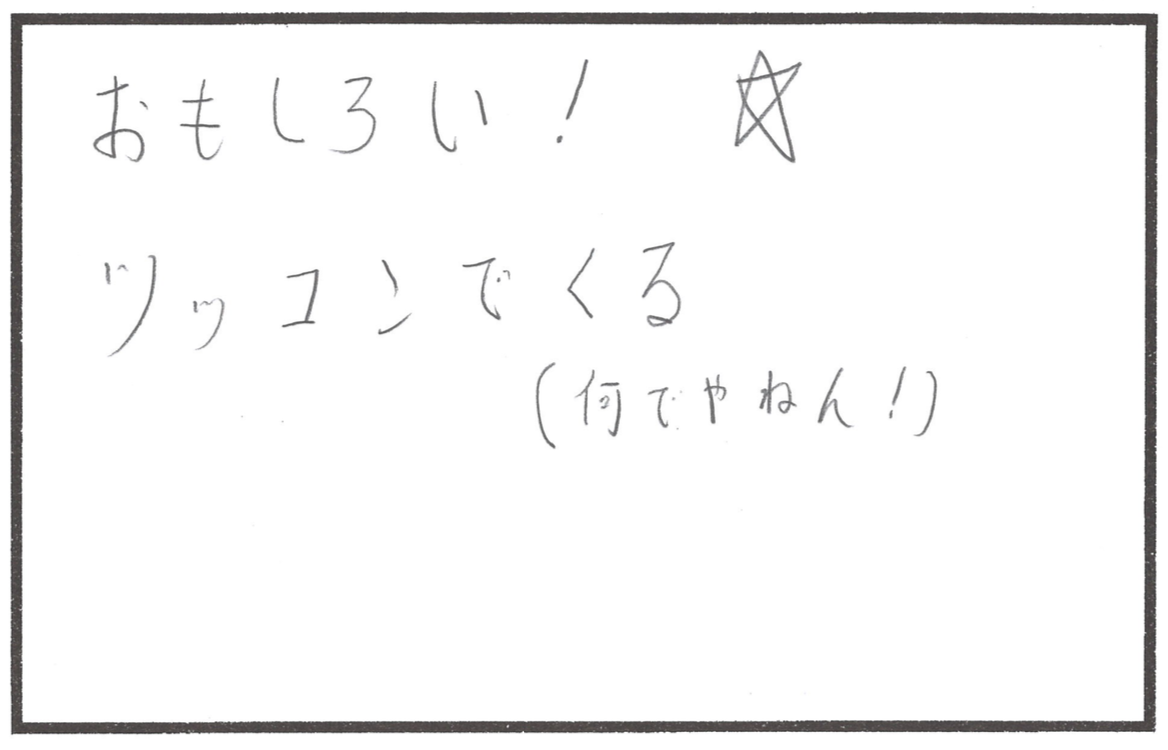 おもしろい! ☆
ツッコンでくる
(何でやねん!)